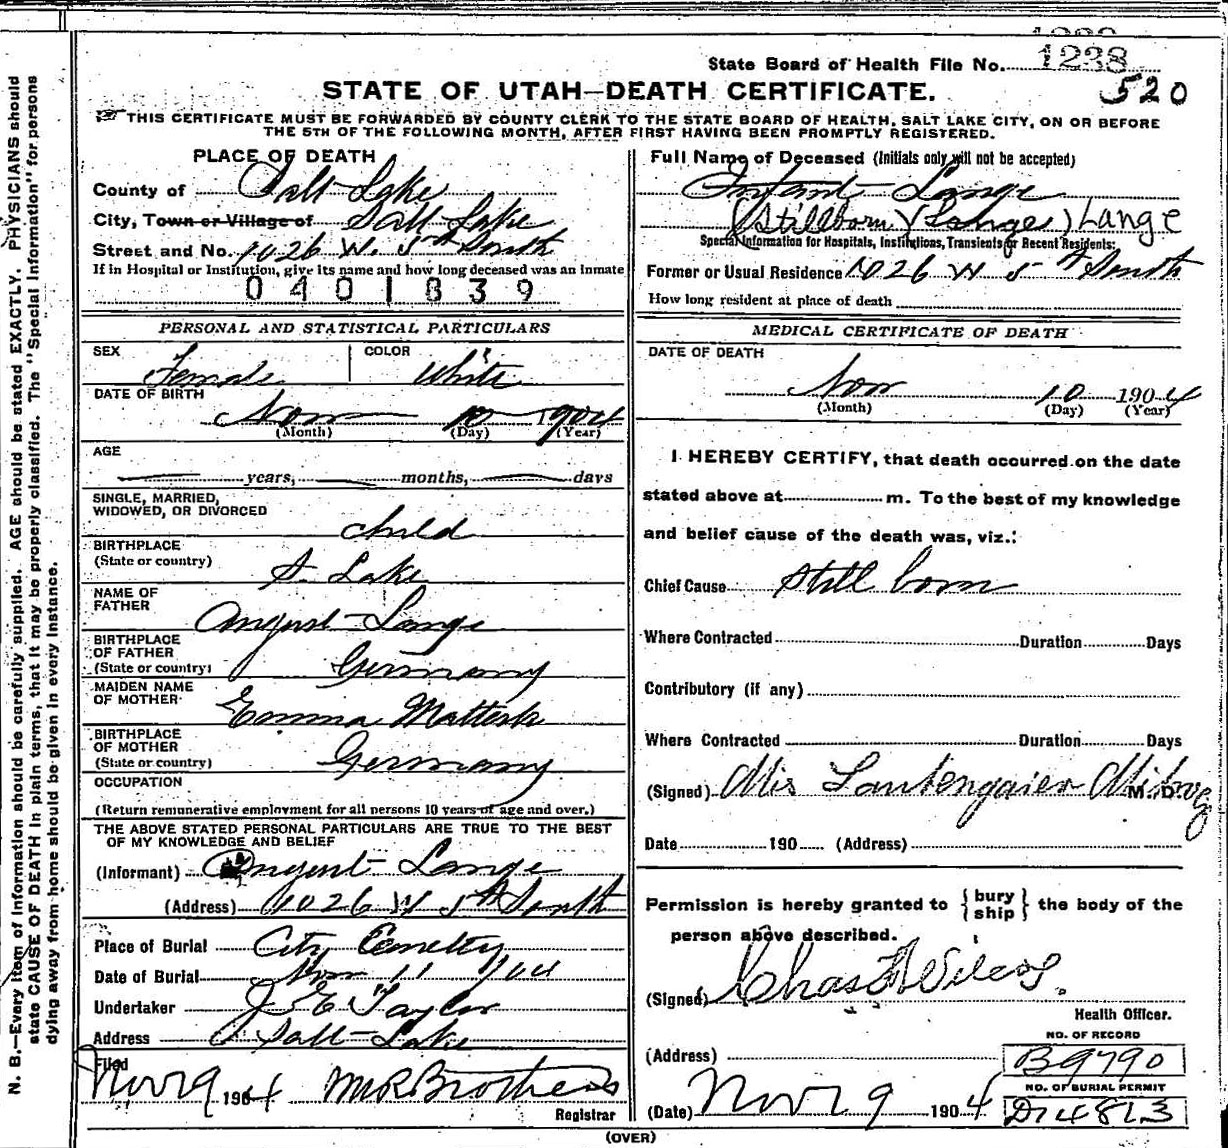 State Board of Health File No. 1238
520
STATE OF UTAH—DEATH CERTIFICATE.
THIS CERTIFICATE MUST BE FORWARDED BY COUNTY CLERK TO THE STATE BOARD OF HEALTH, SALT LAKE CITY, ON OR BEFORE
THE 5TH OF THE FOLLOWING MONTH, AFTER FIRST HAVING BEEN PROMPTLY REGISTERED.
N. B.—Every item of information should be carefully supplied. AGE should be stated EXACTLY. PHYSICIANS should
state CAUSE OF DEATH in plain terms, that it may be properly classified. The "Special Information" for persons
dying away from home should be given in every instance.
PLACE OF DEATH
County of Salt Lake
City, Town or Village of Salt Lake
Street and No. 1026 W. 5th South
If in Hospital or Institution, give its name and how long deceased was an inmate
0401839
PERSONAL AND STATISTICAL PARTICULARS
SEX Female COLOR White
DATE OF BIRTH
Nov 10 1904
(Month) (Day) (Year)
AGE
years, months, days
SINGLE, MARRIED,
WIDOWED, OR DIVORCED
child
BIRTHPLACE
(State or country) S. Lake
NAME OF
FATHER August Lange
BIRTHPLACE
OF FATHER
(State or country) Germany
MAIDEN NAME
OF MOTHER Emma
BIRTHPLACE
OF MOTHER
(State or country) Germany
OCCUPATION
(Return remunerative employment for all persons 10 years of age and over.)
THE ABOVE STATED PERSONAL PARTICULARS ARE TRUE TO THE BEST
OF MY KNOWLEDGE AND BELIEF
(Informant) August Lange
(Address) 1026 W 5th South
Place of Burial City Cemetry
Date of Burial Nov 11 1904
Undertaker J E Taylor
Address Salt Lake
Filed
Nov 19 1904 M R Brothers
Registrar
Full Name of Deceased (Initials only will not be accepted)
Infant Lange
(Stillborn) (Lange) Lange
Special Information for Hospitals, Institutions, Transients or Recent Residents:
Former or Usual Residence 1026 W 5th South
How long resident at place of death
MEDICAL CERTIFICATE OF DEATH
DATE OF DEATH
Nov 10 1904
(Month) (Day) (Year)
I HEREBY CERTIFY, that death occurred on the date
stated above at m. To the best of my knowledge
and belief cause of the death was, viz.:
Chief Cause Still born
Where Contracted Duration Days
Contributory (if any)
Where Contracted Duration Days
(Signed) M. D.
Date 190 (Address)
Permission is hereby granted to { bury
ship } the body of the
person above described.
(Signed) Chas
Health Officer.
NO. OF RECORD
(Address) B9790
NO. OF BURIAL PERMIT
(Date) Nov 19 1904 D14813
(OVER)